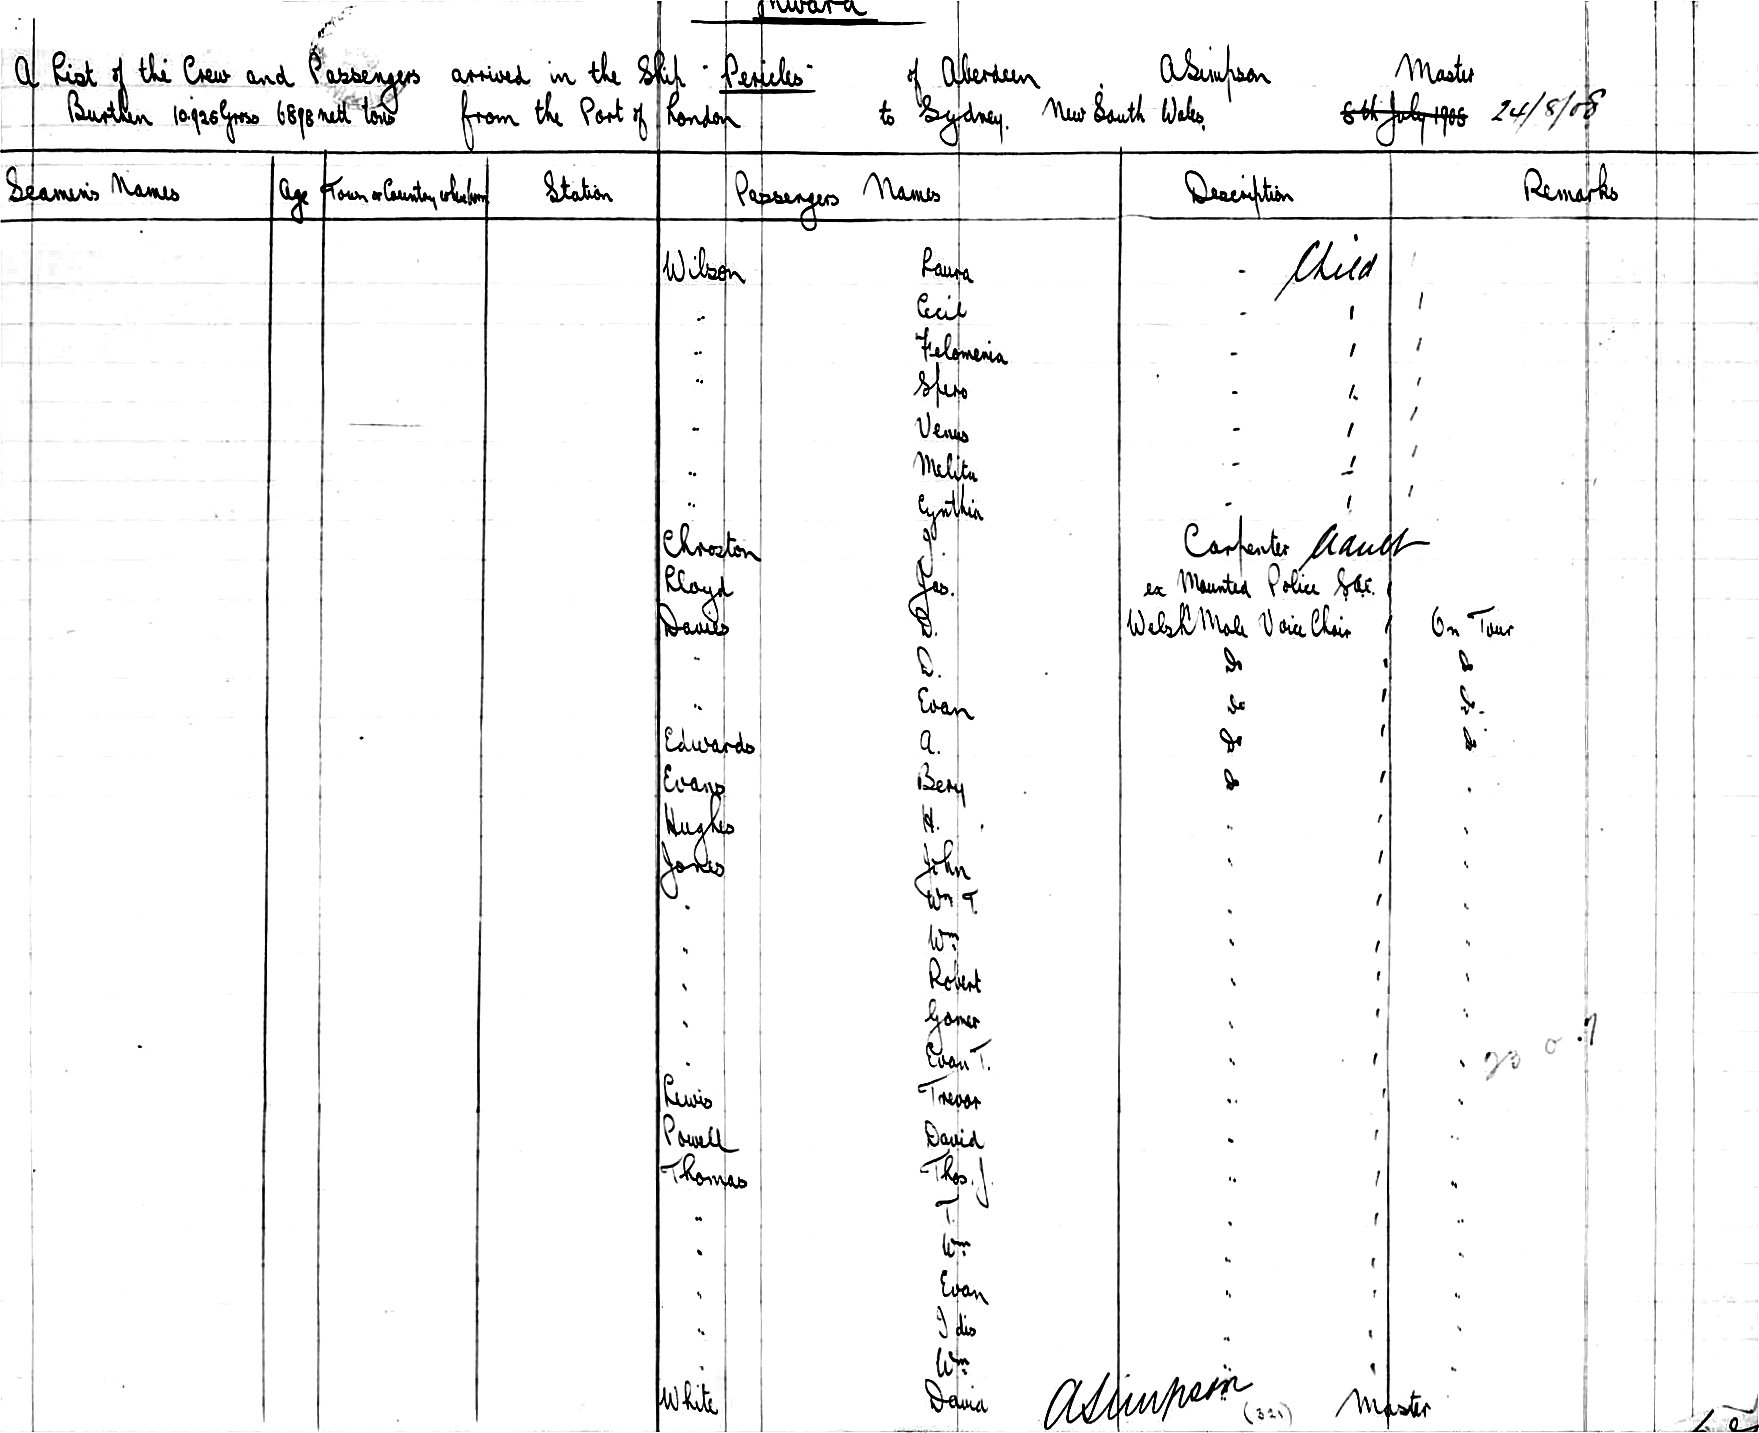 Inward
A List of the Crew and Passengers arrived in the Ship "Pericles" of Aberdeen, ASimpson Master
Burthen 10925 Gross 6898 nett tons from the Port of London to Sydney, New South Wales, 8th July 1908 24/8/08
Seamen's Names Age Town or County where born Station Passengers Names Description Remarks
Wilson Laura - Child
" Cecil - "
" Felomenia - "
" Spero - "
" Venus - "
" Melita - "
" Cynthia - "
Chroston J Carpenter Adult
Lloyd Jas. ex Mounted Police "
Davies D. Welsh Male Voice Choir " On Tour
" D. Do " Do
" Evan Do " Do
Edwards A. Do " Do
Evans Do " "
Hughes H. " " "
Jones John " " "
" Wm T. " " "
" Wm " " "
" Robert " " "
" Gomer " " "
" Evan T. " " "
Lewis Trevor " " "
Powell David " " "
Thomas Thos. J. " " "
" T. " " "
" Wm " " "
" Evan " " "
" Idis " " "
" Wm " " "
White David " ASimpson (321) Master